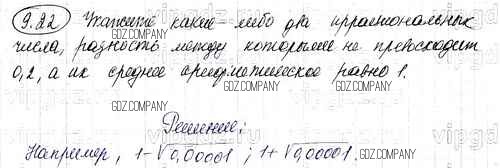 9.22 Укажите какие-либо два иррациональных
числа, разность между которыми не превосходит
0,2, а их среднее арифметическое равно 1.
GDZ.COMPANY
GDZ.COMPANY
GDZ.COMPANY
GDZ.COMPANY
Решение:
Например, 1-√0,00001 ; 1+√0,00001.
GDZ.COMPANY